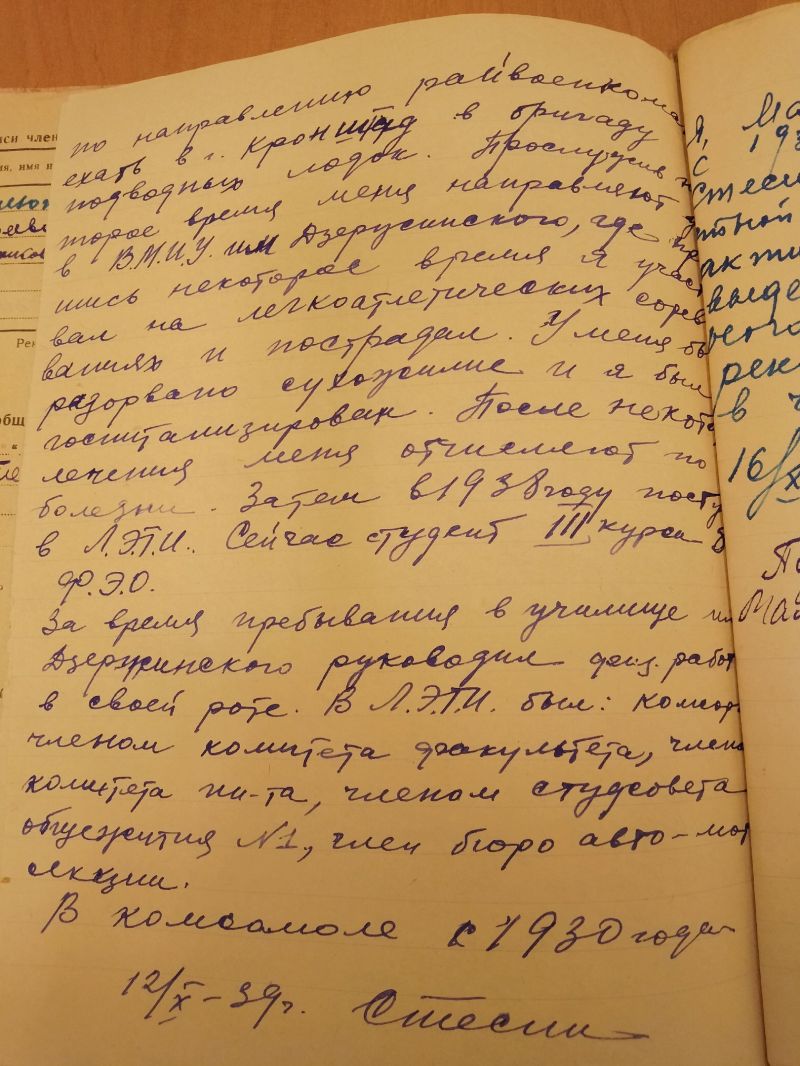 по направлению райвоенкома
ехать в г. Кронштад в бригаду
подводных лодок. Прослужив н
торое время меня направляют
в В.М.И.У. им Дзержинского, где
шись некоторое время я участ
вал на легкоатлетических сорев
ваниях и пострадал. У меня бы
разорвано сухожилие и я был
госпитализирован. После некото
лечения меня отчисляют по
болезни. Затем в 1938 году посту
в Л.Э.Т.И.. Сейчас студент III курса
Ф.Э.О.
За время пребывания в училище им
Дзержинского руководил физ. работ
в своей роте. В Л.Э.Т.И. был: комсор
членом комитета факультета, член
комитета ин-та, членом студсовета
общежития №1, член бюро авто-мот
секции.
В комсамоле с 1930 года
12/X-39г. Стесин
иси член
ия, имя и
Рек
общ
Я, Ма
193
с
Стеси
тной
акти
выде
рек
в ч
16/X
По
Май